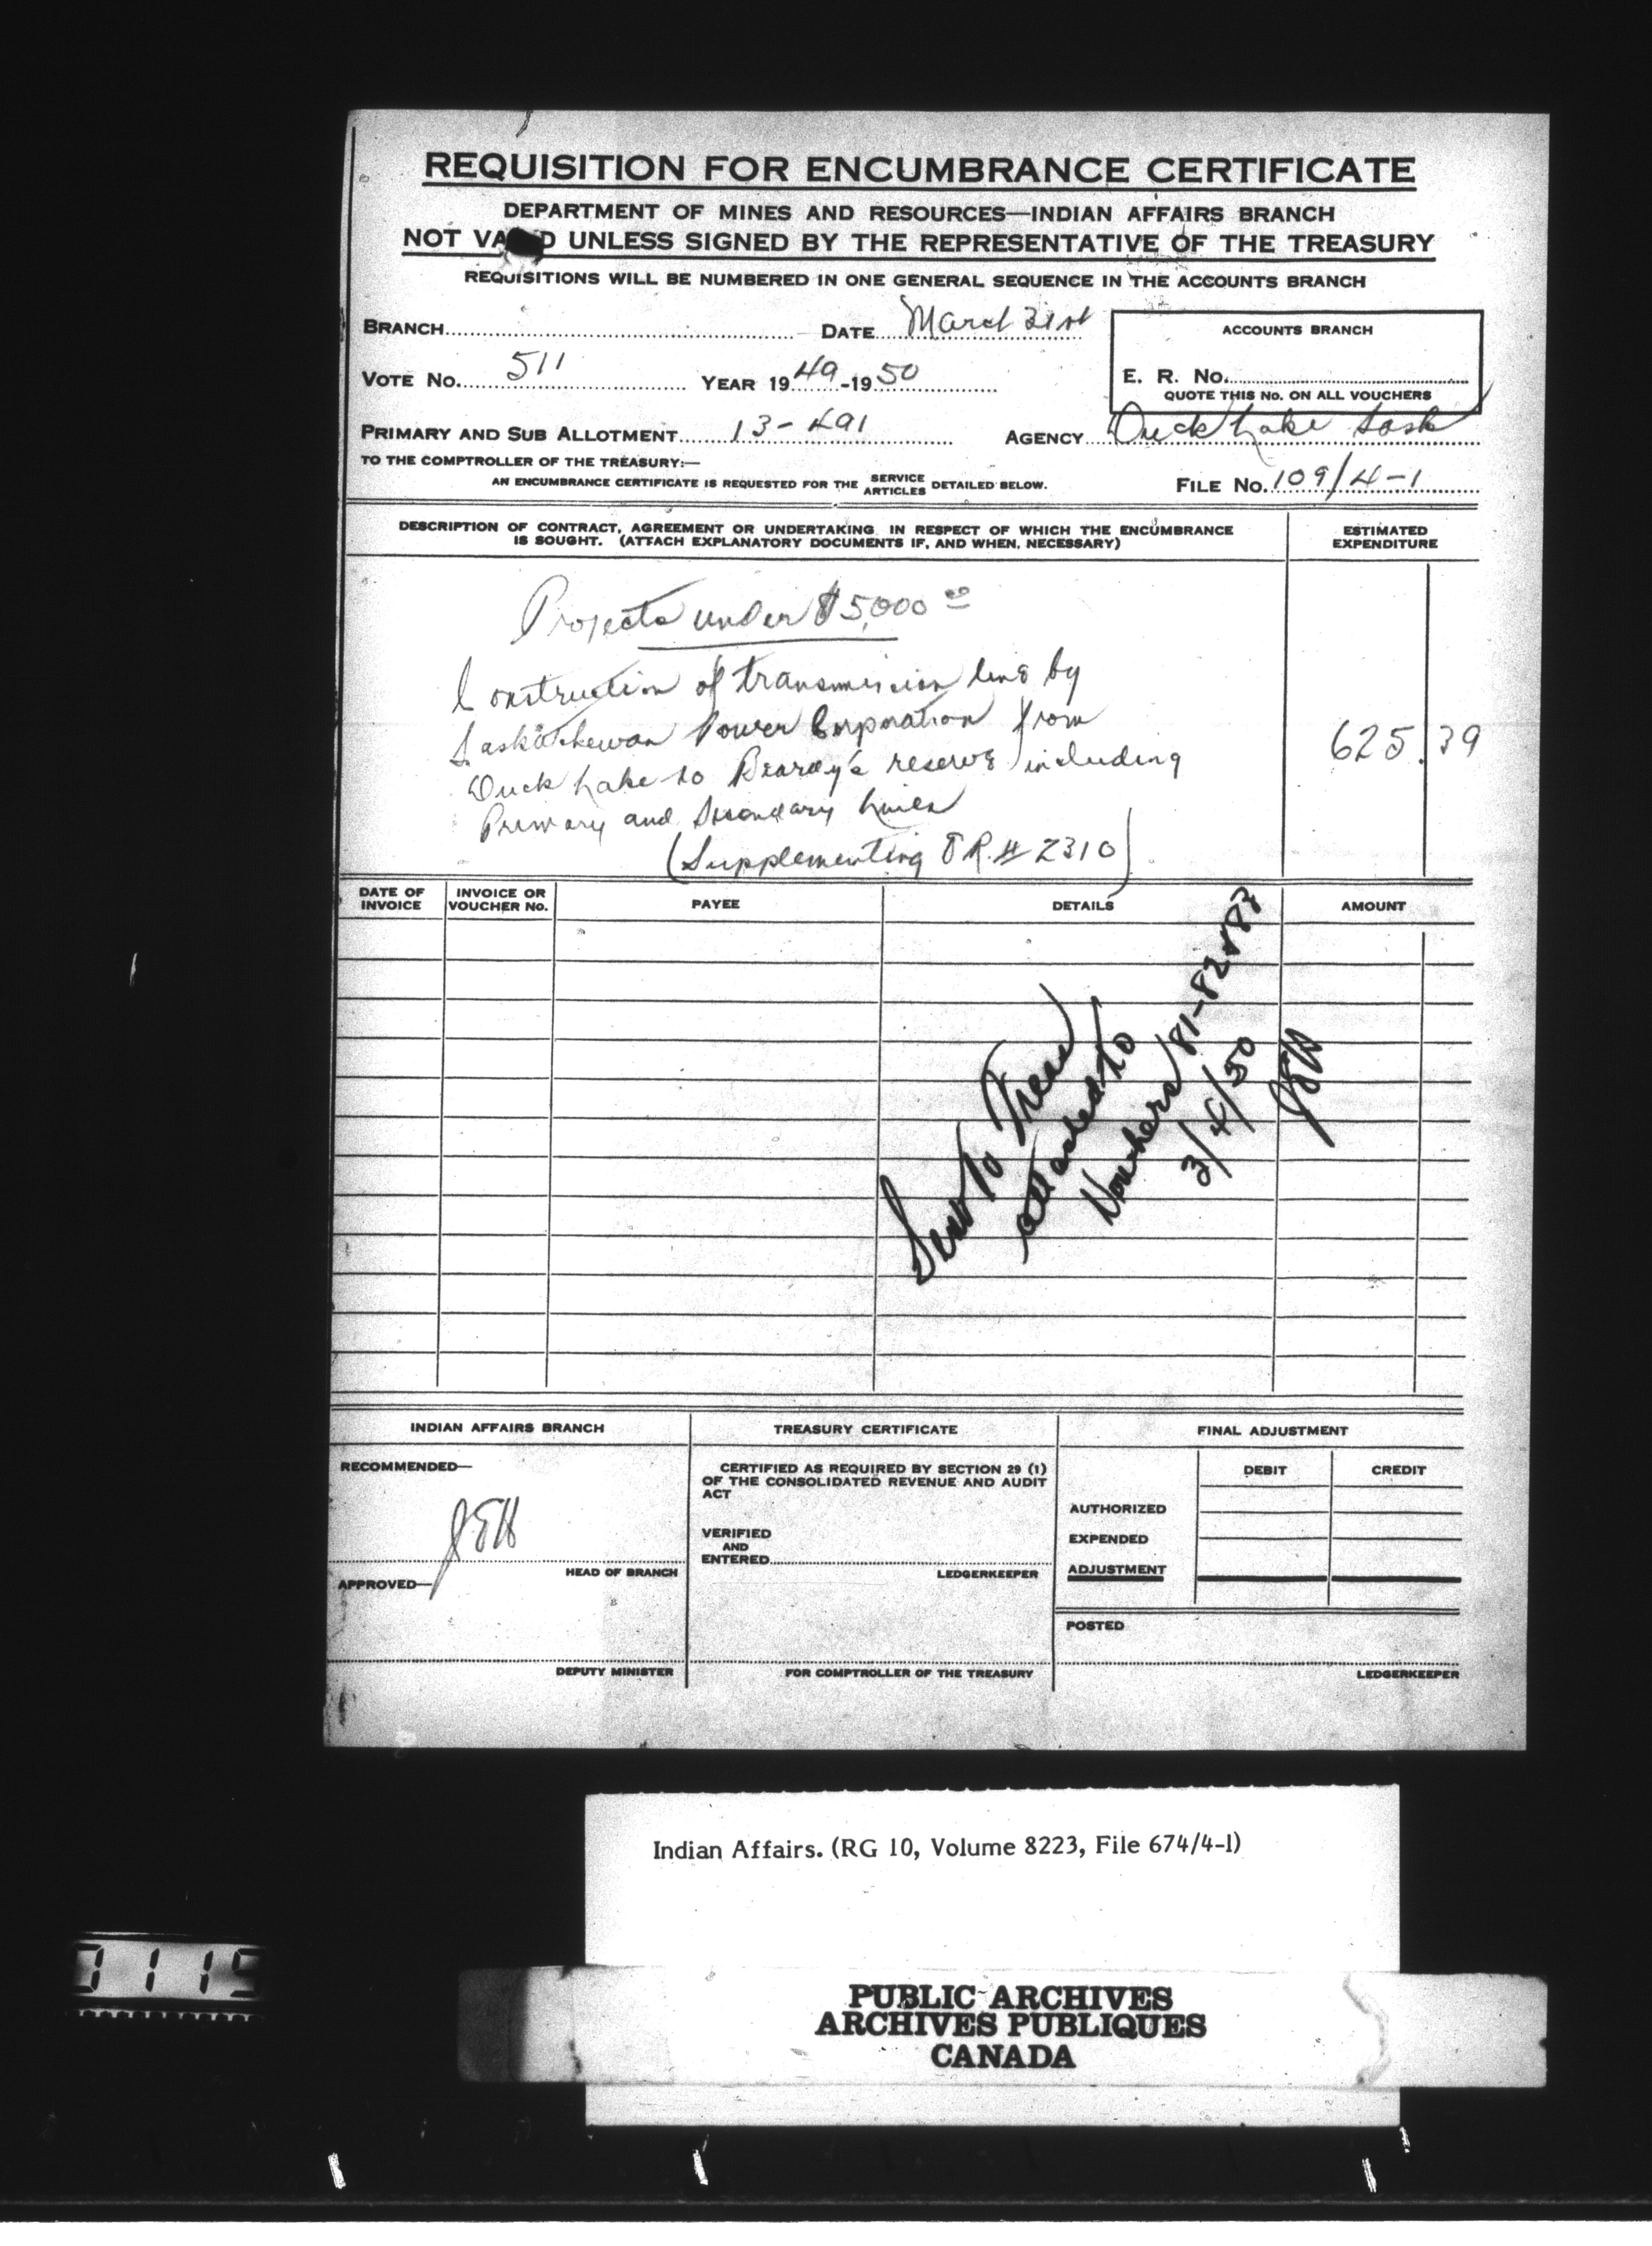 REQUISITION FOR ENCUMBRANCE CERTIFICATE
DEPARTMENT OF MINES AND RESOURCES—INDIAN AFFAIRS BRANCH
NOT VA D UNLESS SIGNED BY THE REPRESENTATIVE OF THE TREASURY
REQUISITIONS WILL BE NUMBERED IN ONE GENERAL SEQUENCE IN THE ACCOUNTS BRANCH
BRANCH DATE March 31st
ACCOUNTS BRANCH
VOTE No. 511 YEAR 19 49 -19 50
E. R. No.
QUOTE THIS No. ON ALL VOUCHERS
PRIMARY AND SUB ALLOTMENT 13-491 AGENCY Duck Lake Sask
TO THE COMPTROLLER OF THE TREASURY:—
AN ENCUMBRANCE CERTIFICATE IS REQUESTED FOR THE SERVICE ARTICLES DETAILED BELOW. FILE No. 109/4-1
DESCRIPTION OF CONTRACT, AGREEMENT OR UNDERTAKING IN RESPECT OF WHICH THE ENCUMBRANCE
IS SOUGHT. (ATTACH EXPLANATORY DOCUMENTS IF, AND WHEN, NECESSARY)
ESTIMATED
EXPENDITURE
Projects under $5,000 00
Construction of transmission line by
Saskatchewan Power Corporation from
Duck Lake to Beardy's reserve including
Primary and Secondary lines
625.39
(Supplementing E R. # 2310)
DATE OF INVOICE INVOICE OR VOUCHER No. PAYEE DETAILS AMOUNT
Sent to Treas
attached to
Vouchers 81-82
3/4/50
JEH
INDIAN AFFAIRS BRANCH
RECOMMENDED—
JEH
HEAD OF BRANCH
APPROVED—
DEPUTY MINISTER
TREASURY CERTIFICATE
CERTIFIED AS REQUIRED BY SECTION 29 (1)
OF THE CONSOLIDATED REVENUE AND AUDIT
ACT
VERIFIED
AND
ENTERED
LEDGERKEEPER
FOR COMPTROLLER OF THE TREASURY
FINAL ADJUSTMENT
DEBIT CREDIT
AUTHORIZED
EXPENDED
ADJUSTMENT
POSTED
LEDGERKEEPER
Indian Affairs. (RG 10, Volume 8223, File 674/4-1)
0115
PUBLIC ARCHIVES
ARCHIVES PUBLIQUES
CANADA